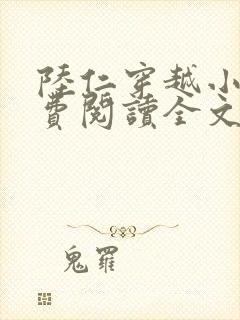 陸仁穿越小
費閱讀全文
鬼羅